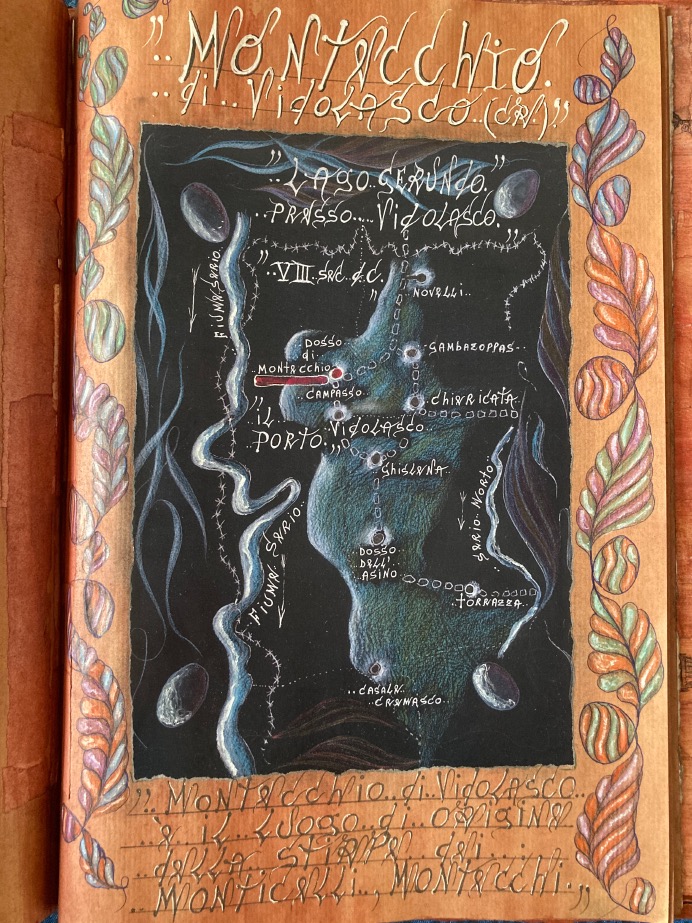 "..MONTECCHIO.
..di..VIDOLASCO..(CR.)"
"..LAGO..GERUNDO.
..PRESSO....VIDOLASCO.."
FIUME SERIO
"..VIII..SEC. d.C.
..NOVELLI..
..DOSSO
di
MONTECCHIO
GAMBAZOPPAS..
CAMPASSO
CHIERICATA
"..IL
PORTO.."
VIDOLASCO..
GHISLENA..
SERIO MORTO..
FIUME SERIO..
..DOSSO
DELL'
ASINO..
..TORNAZZA..
..CASALE
CREMASCO..
"..MONTECCHIO..di..VIDOLASCO..
..è..IL..LUOGO..di..ORIGINE
..DELLA..STIRPE..DEI...
MONTICELLI..,MONTECCHI.."